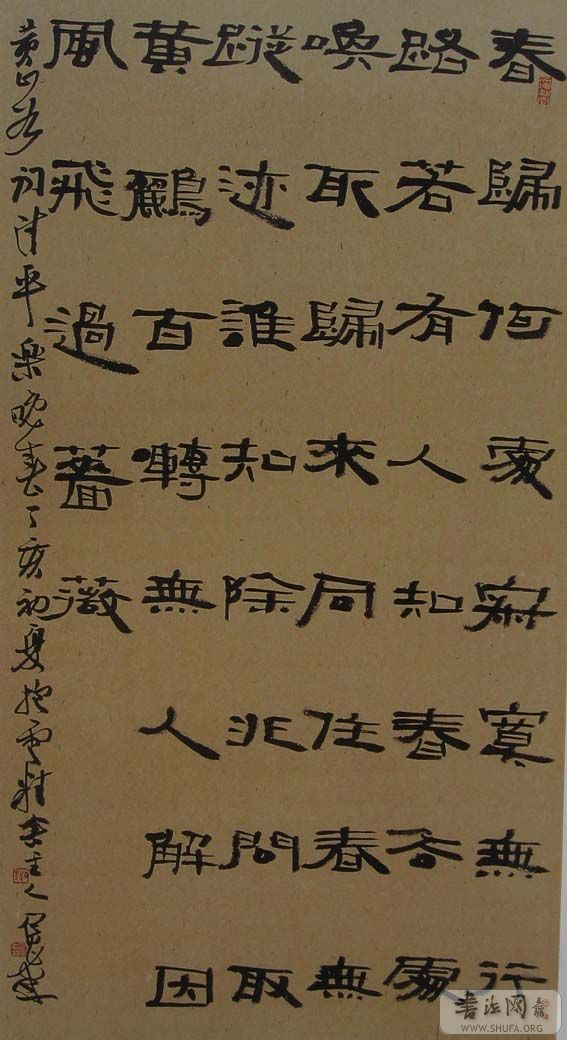 春歸何處寂寞無行
路若有人知春去處
喚取歸來同住春無
蹤迹誰知除非問取
黃鸝百囀無人解因
風飛過薔薇
黃山谷詞清平樂晚春丁亥初夏抱雲雅舍主人
書法网
WWW.SHUFA.ORG